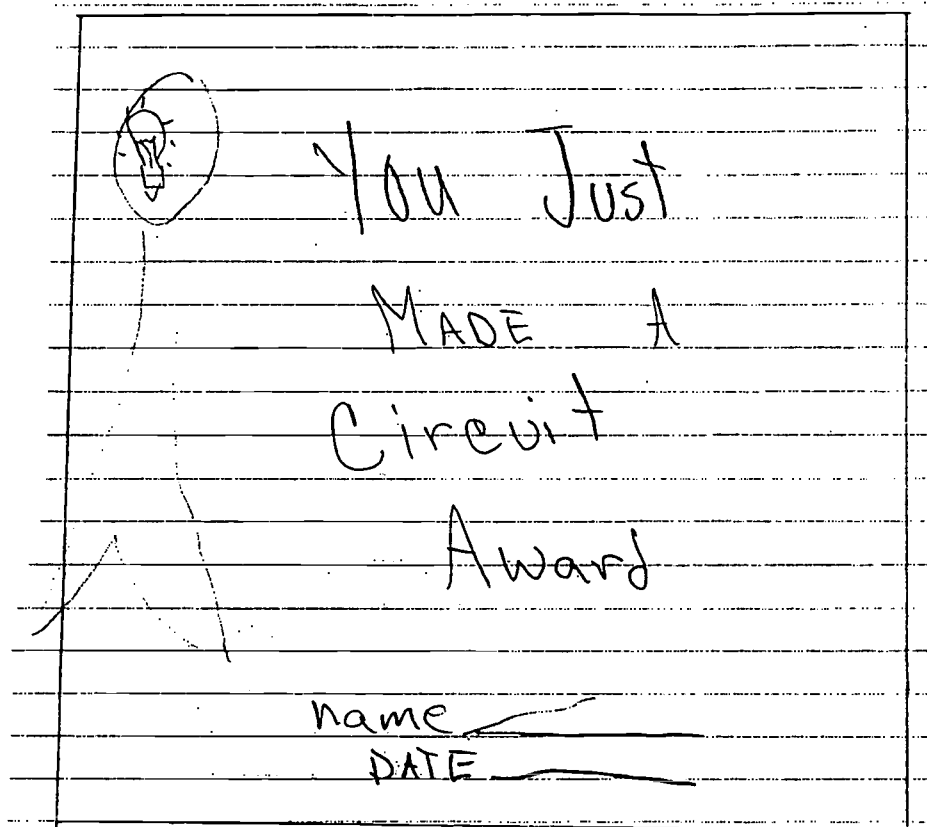 You Just
MADE A
Circuit
Award
name
DATE